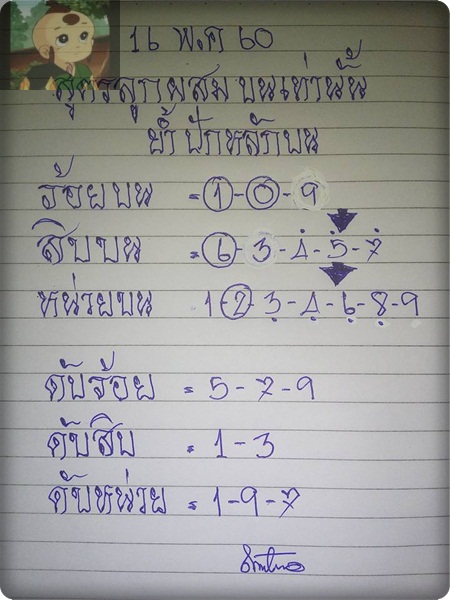 16 พ.ค 60
สูตรลูกผสม บนเท่านั้น
ย้ำ ปักหลักบน
ร้อยบน = 1 - 0 - 9
สิบบน = 6 - 3 - 4 - 5 - 7
หน่วยบน 1 2 - 3 - 4 - 6 - 8 - 9
ดับร้อย = 5 - 7 - 9
ดับสิบ = 1 - 3
ดับหน่วย = 1 - 9 - 7